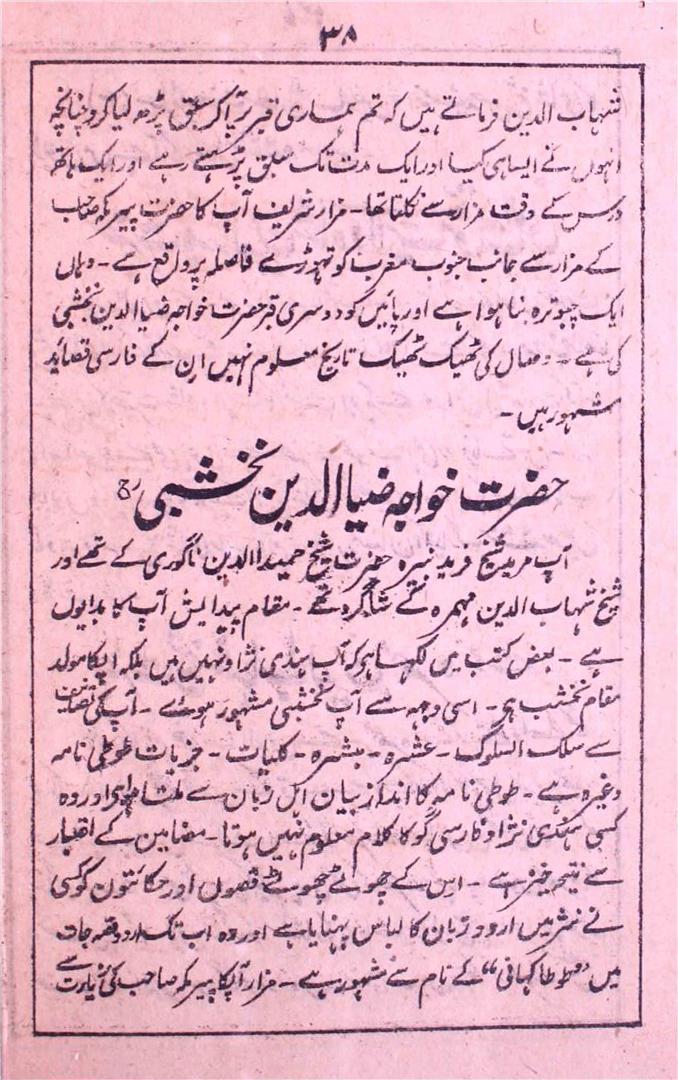 ۳۸
شہاب الدین فرماتے ہیں کہ تم ہماری قبر پر آکر سبق پڑھ لیا کرو چنانچہ
انہوں نے ایسا ہی کیا اور ایک مدت تک سبق پڑہتے رہے اور ایک ہاتھ
درس کے وقت مزار سے نکلتا تھا۔ مزار شریف آپ کا حضرت پیر مکہ صاحب
کے مزار سے جانب جنوب مغرب کو تہوڑے فاصلہ پر واقع ہے۔ وہاں
ایک چبوترہ بنا ہوا ہے اور پائیں کو دوسری قبر حضرت خواجہ ضیا الدین نخشبی
کی ہے۔ وصال کی ٹھیک ٹھیک تاریخ معلوم نہیں ان کے فارسی قصائد
مشہور ہیں۔
حضرت خواجہ ضیا الدین نخشبی رح
آپ مرید شیخ فرید نبیرہ حضرت شیخ حمید الدین ناگوری کے تھے اور
شیخ شہاب الدین مہمرہ کے شاگرد تھے۔ مقام پیدایش آپ کا بدایوں
ہے۔ بعض کتب میں لکہا ہو کہ آپ ہندی نژاد نہیں ہیں بلکہ آپکا مولد
مقام نخشب ہو۔ اسی وجہ سے آپ نخشبی مشہور ہوئے۔ آپ کی تصانیف
سے سلک السلوک۔ عشرہ۔ مبشرہ۔ کلیات۔ جزیات طوطی نامہ
وغیرہ ہے۔ طوطی نامہ کا انداز بیان اہل زبان سے ملتا ہوا ہی اور وہ
کسی ہندی نژاد فارسی گو کا کلام معلوم نہیں ہوتا۔ مضامین کے اعتبار
سے نتیجہ خیز ہے۔ اس کے چھوٹے چھوٹے قصوں اور حکائتون کو کسی
نے نثر میں اردو زبان کا لباس پہنایا ہے اور وہ اب تک اردو قصہ جات
میں ”طوطا کہانی“ کے نام سے مشہور ہے۔ مزار آپکا پیر مکہ صاحب کی زیارت سے